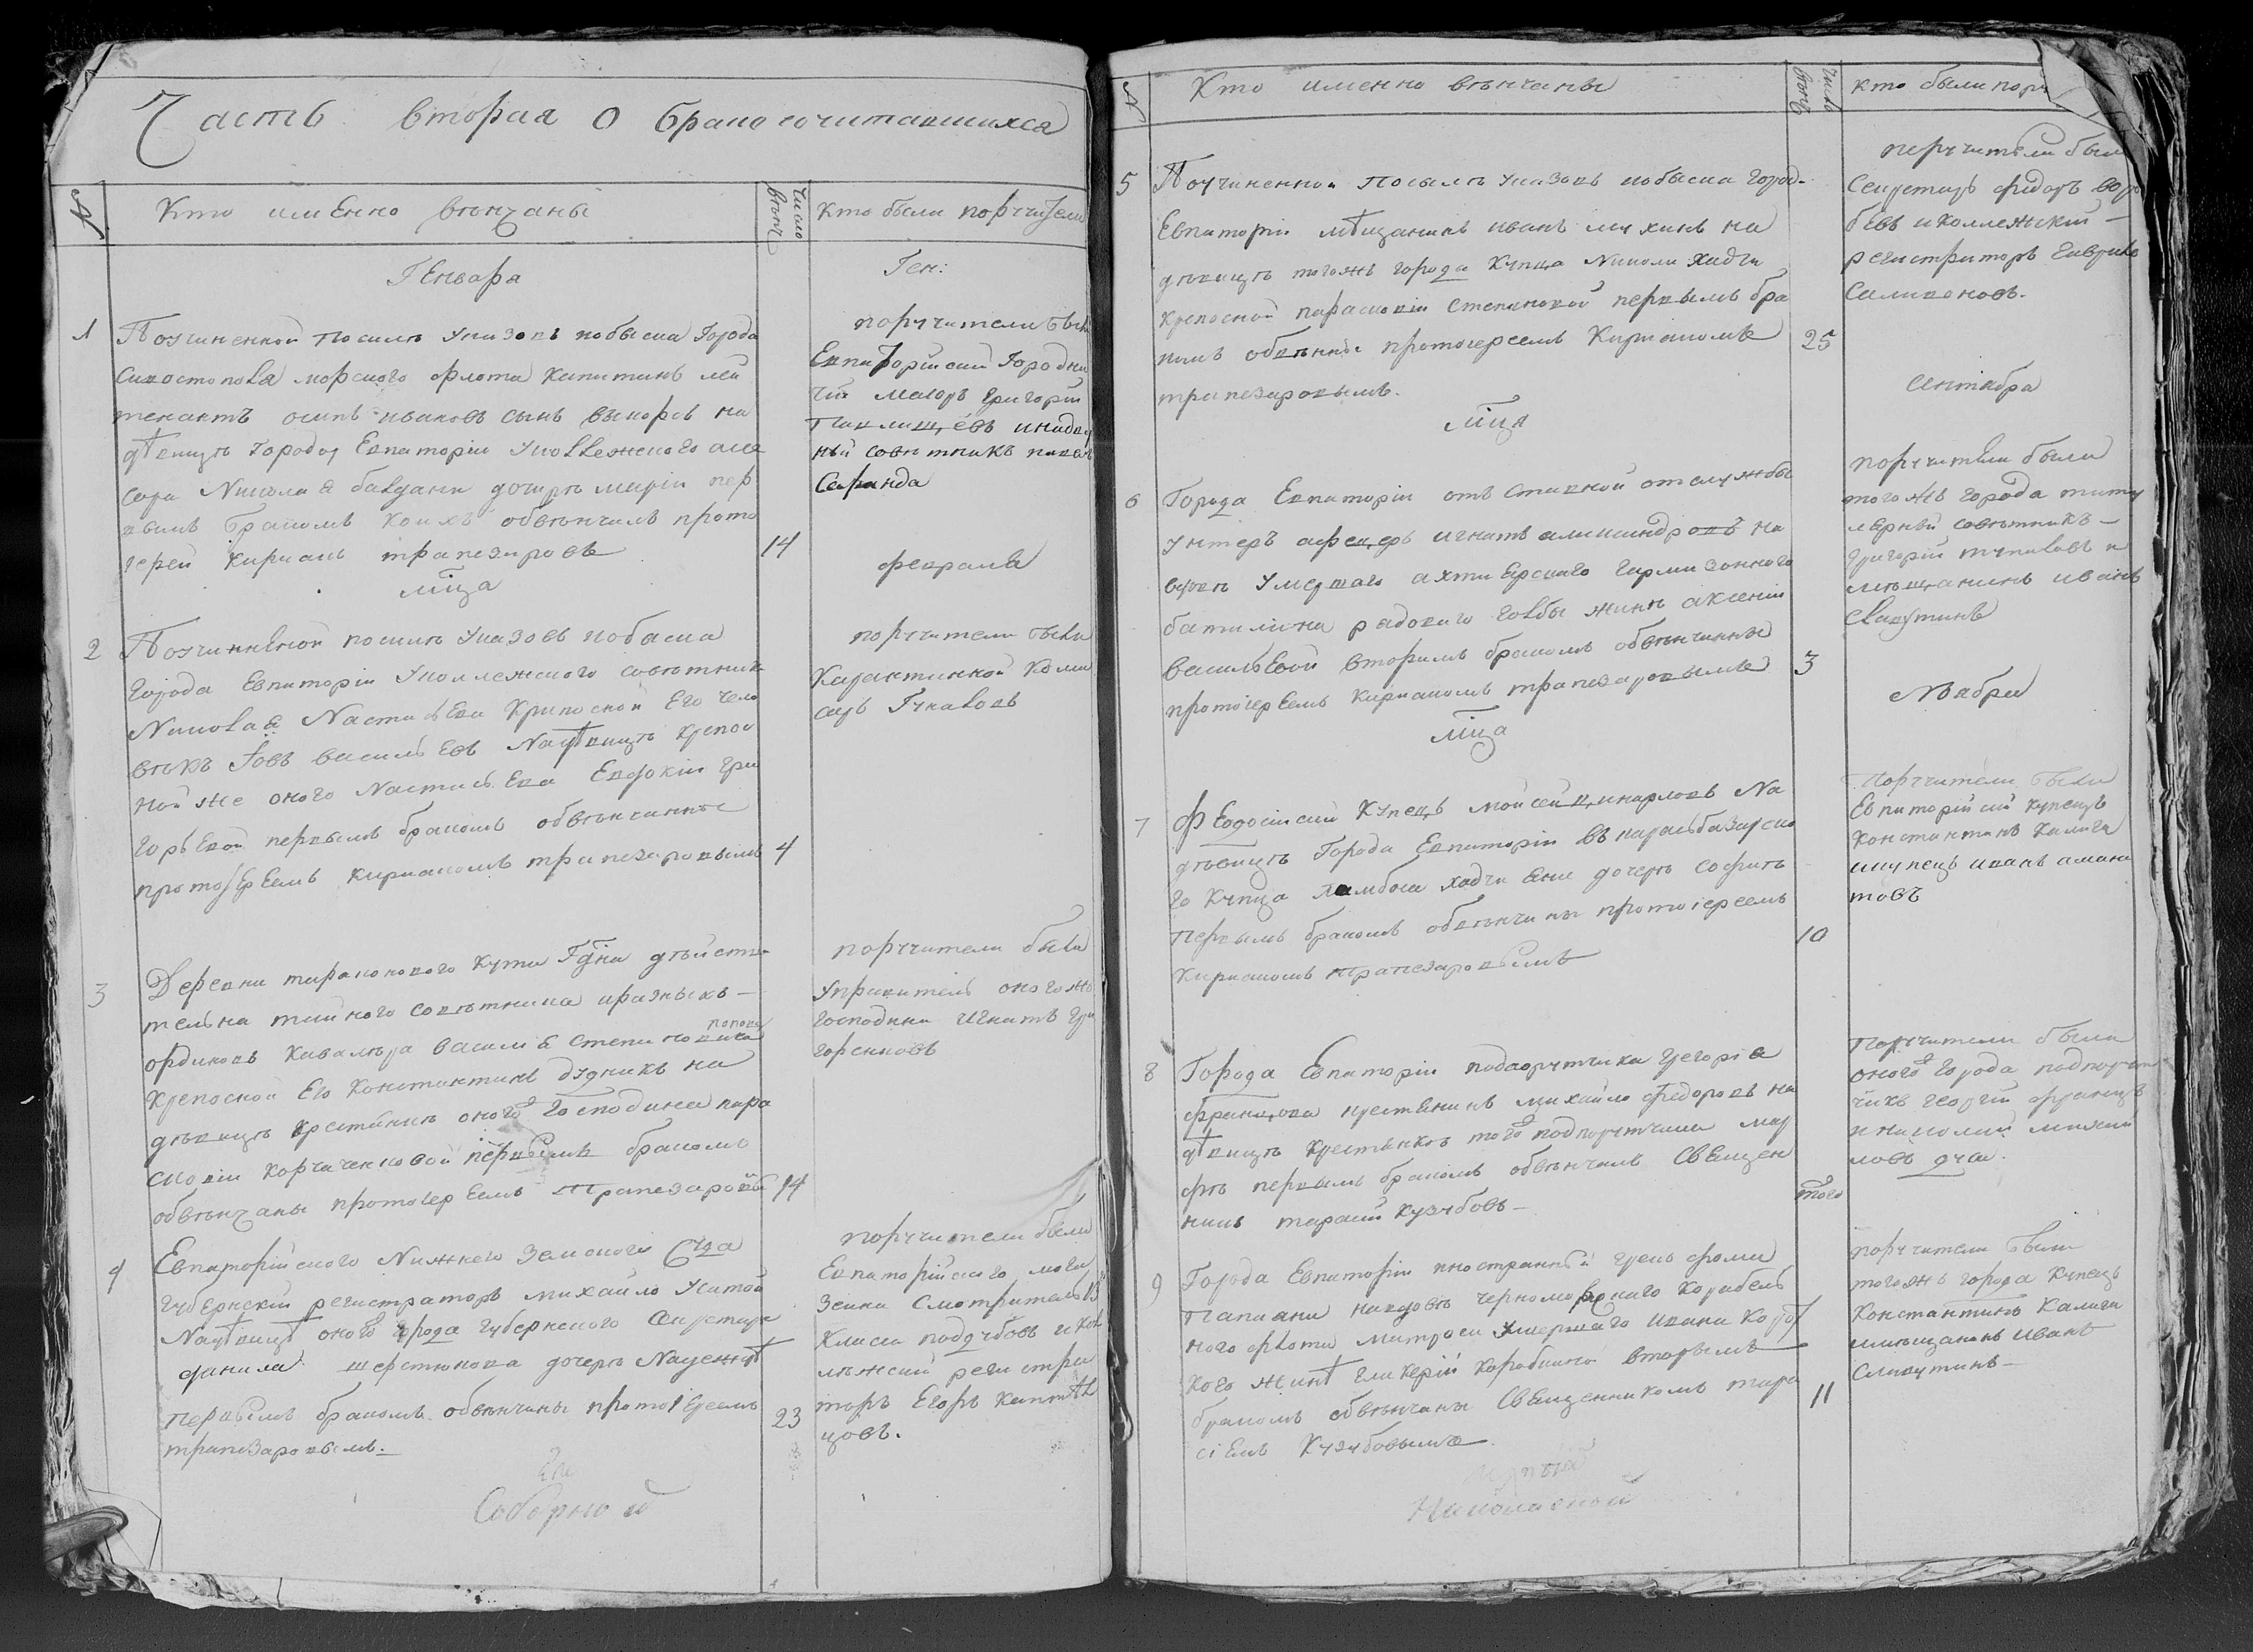 Часть вторая о бракосочитавшихся
№
Кто имЕнно вѣнчаны
число вѣнч
Кто были поручители
ГЕнваря
Ген:
1
По учиненной по силѣ указовъ по обыска Города
Сивостополя морского флота капитанъ лей
тенантъ осипъ ивановъ сынъ
на
дѣвицѣ города Евпаторіи у коллежского асе
сора Николая дочерѣ маріи пер
вымъ бракомъ коихъ обвѣнчилъ прото
герей кириакъ трапезаровъ
14
поручители были
Евпаторійский Городни
чій маіоръ григорій
и надво
ный совѣтникъ павелъ
Саранда
мца
февраля
2
По учинѣнной по силѣ указовъ по обыска
города Евпаторіи у коллежского совѣтника
Николая НастасьЕва крипосной Его чело
вѣкъ Іовъ василъЕвъ На дѣвицѣ крепос
ной же оного НастасьЕва Евдокіи гри
горьЕвой первымъ бракомъ обвѣнчанны
протоіерЕемъ кириакомъ трапезаровымъ
4
поручители были
Карантинной коми
саръ Гуналовъ
3
Деревни тарханового кута Гдна дѣйстви
тельна тайного совѣтника и разныхъ
ординовъ кавалера василія степановича
попова
крепосной Его Константинъ дудникъ на
дѣвицѣ крестьянкѣ оного господина пара
сковіи корчаченковой первымъ бракомъ
обвѣнчаны протоіерЕемъ трапезаровымъ
14
поручители были
управитель оного жъ
господина Игнатъ гри
горенковъ
4
Евпаторійского Нижнего Земского Суда
губернскій регистраторъ михайло Усатой
На дѣвицѣ оного города губернского Секретаря
данила шерстюкова дочерѣ Надеждѣ
первымъ бракомъ обвѣнчаны протоіЕреемъ
трапезаровымъ.
23
поручители были
Евпаторійского мага
зеина Смотритель 13
класса поддубовъ и кол
лѣжский регистра
торъ Егоръ
цовъ.
Соборной
№
Кто именно вѣнчаны
число вѣнч
кто были пору
5
По учиненной по силѣ указовъ по обыска город
Евпаторіи мѣщанинъ иванъ мухинъ на
дѣвицѣ тогожъ города купца Николи хаджи
крепосной параскевіи степановой первымъ бра
комъ обвѣнчны протоіереемъ Кириакомъ
трапезаровымъ.
25
поручители были
Секретарь фидоръ воро
бевъ и коллежский
регистраторъ Гаврила
Салихоновъ.
мца
сентября
6
Города Евпаторіи отъ ставной от службы
унтеръ афецеръ игнатъ аликсандровъ на
вдовѣ умершаго ахтиярского гарнизонного
баталиона рядового голбы жинѣ аксеніи
васильЕвой вторымъ бракомъ обвѣнчанны
протоіерЕемъ Кириакомъ трапезаровымъ
3
поручители были
того жъ города титу
лярный совѣтникъ
григорій тупиловъ и
мѣщанинъ иванъ
слапутинъ
мца
Ноября
7
ФЕодосійский купецъ мойсей
На
дѣвицѣ Города Евпаторіи въ карасьбазарско
го купца хаджи дочерѣ софитѣ
первымъ бракомъ обвѣнчаны протоіереемъ
Кириакомъ трапезаровымъ
10
поручители были
Евпаторійский купецъ
константинъ калига
и купецъ иванъ амана
товъ
8
Города Евпаторіи подпорутчика григорія
францова крестянинъ михайло федоровъ на
дѣвицѣ крестянкѣ того подпорутчика мар
фѣ первымъ бракомъ обвѣнчалъ СвЕщен
никъ тарасій кузубовъ
того
поручители были
оного города подпорут
чикъ георгій францовъ
и николай михай
ловъ
9
Города Евпаторіи иностранный грекъ фома
папиани на вдовѣ черноморского корабель
ного флота матроса умершаго ивана коро
кого жинѣ гликеріи коробкиной вторымъ
бракомъ обвѣнчаны СвЕщенникомъ тара
сіЕмъ Кузубовымъ
11
поручители были
тогожъ города купецъ
Константинъ Калига
и мѣщанинъ Иванъ
Слапутинъ
Николаской